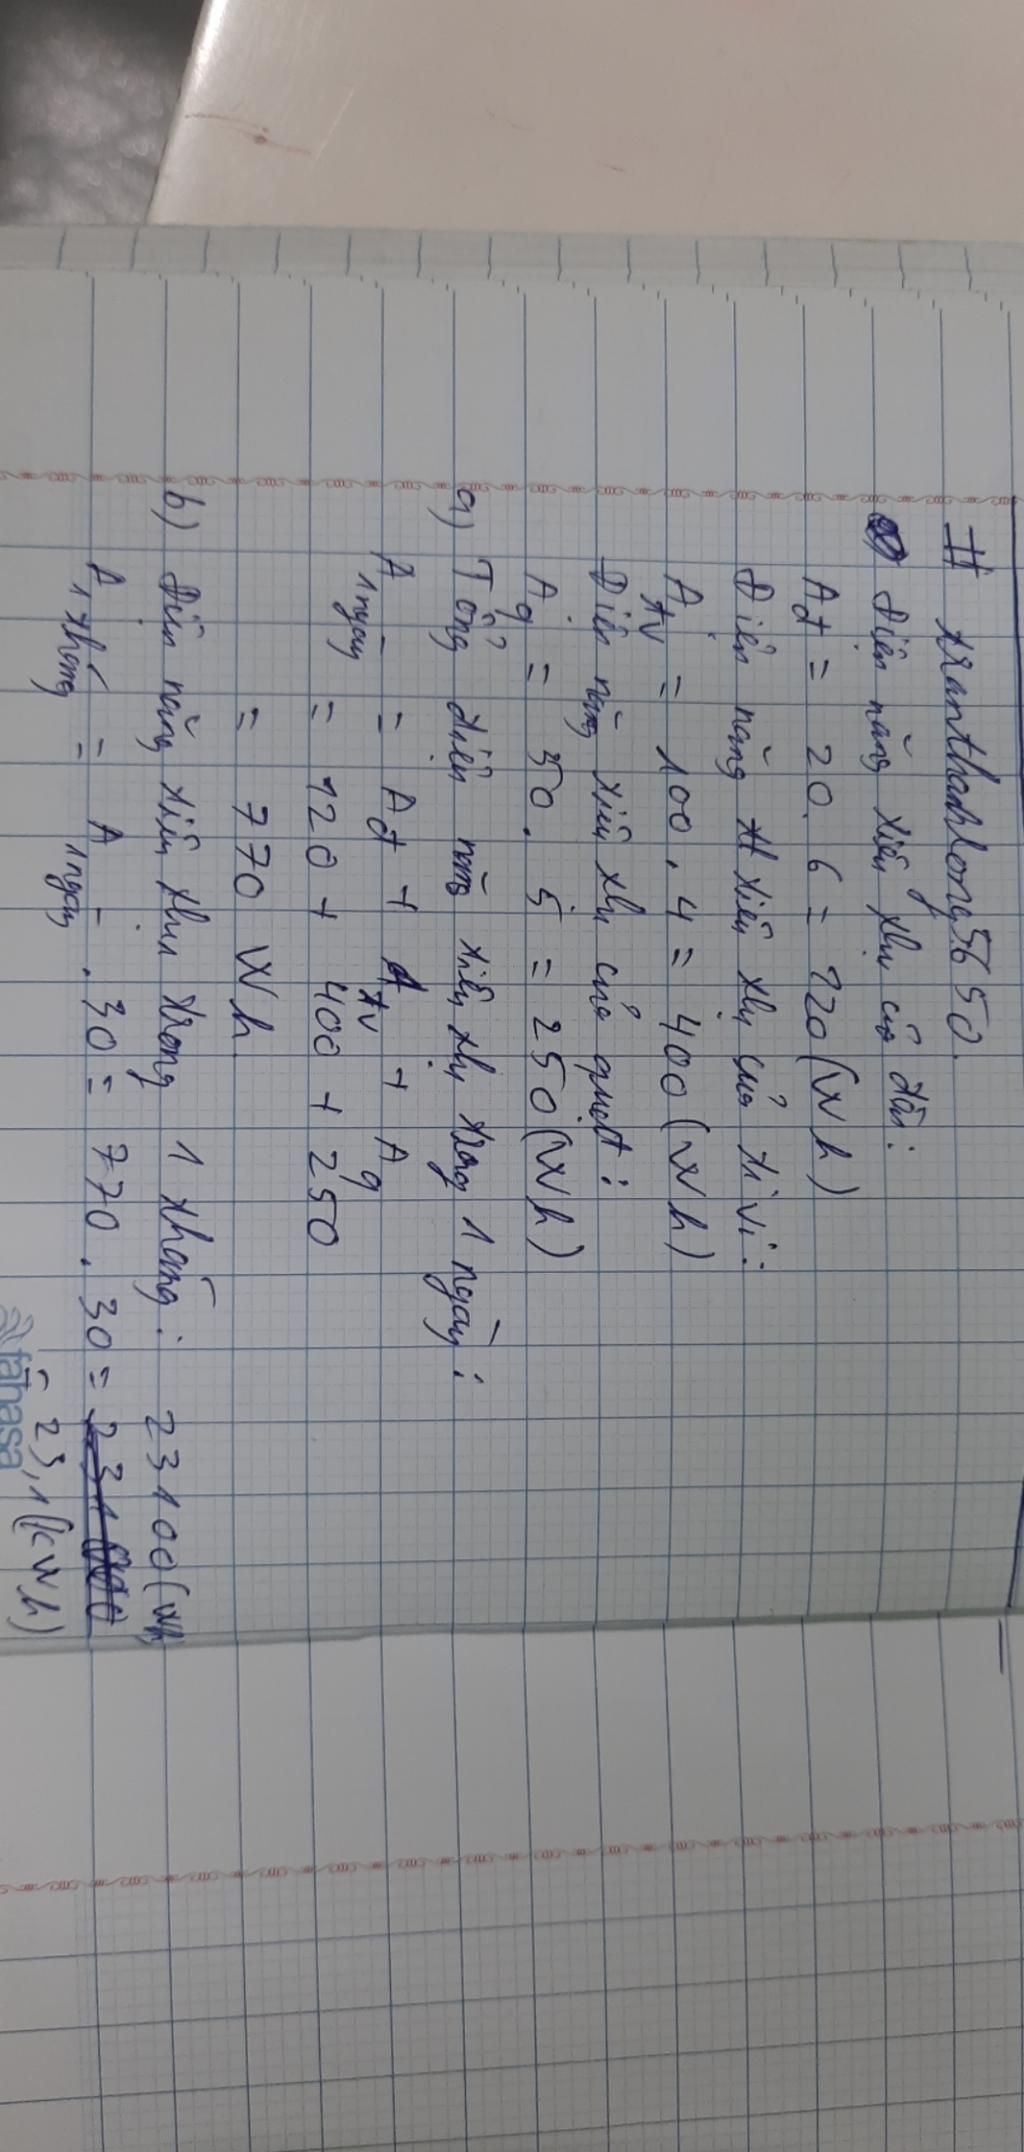 # tranthanhlong5650.
Điện năng tiêu thụ của đèn:
Ađ = 20. 6 = 120 (Wh)
Điện năng tiêu thụ của ti vi:
Atv = 100. 4 = 400 (Wh)
Điện năng tiêu thụ của quạt:
Aq = 50. 5 = 250 (Wh)
a) Tổng điện năng tiêu thụ trong 1 ngày:
A1ngày = Ađ + Atv + Aq
= 120 + 400 + 250
= 770 Wh
b) Điện năng tiêu thụ trong 1 tháng:
A1tháng = A1ngày . 30 = 770 . 30 = 23100 (Wh)
= 23,1 (kWh)
fahasa